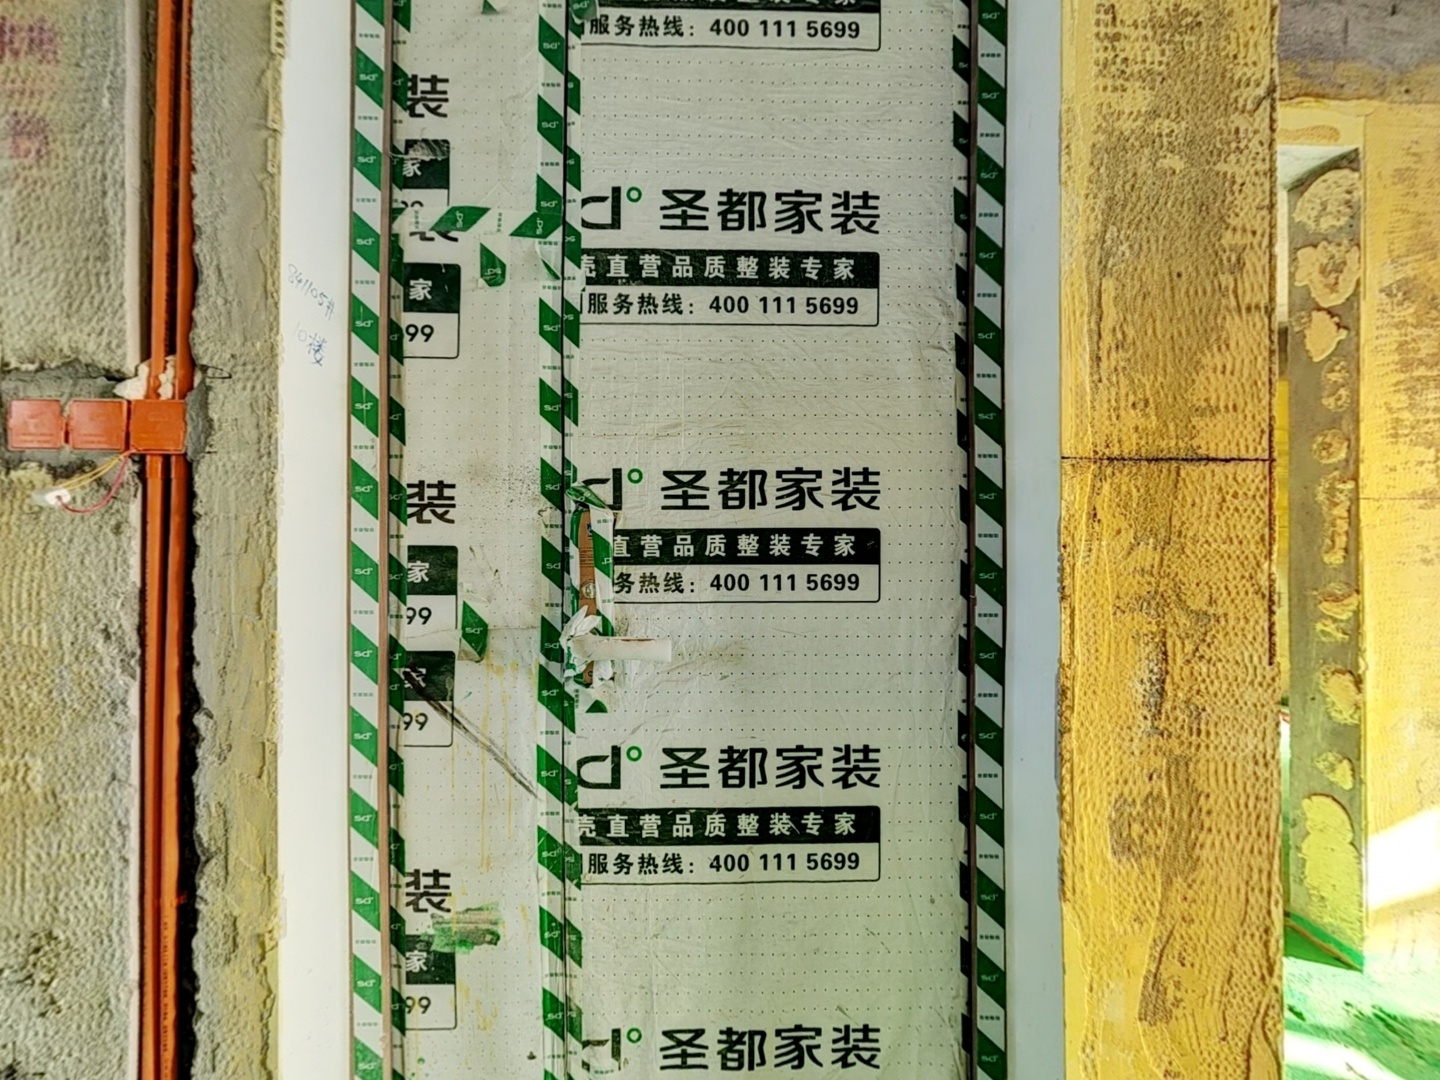 服务热线：400 111 5699
装
家
d° 圣都家装
壳直营品质整装专家
服务热线：400 111 5699
家
99
841105#
10楼
装
d° 圣都家装
直营品质整装专家
务热线：400 111 5699
家
99
家
99
d° 圣都家装
壳直营品质整装专家
服务热线：400 111 5699
装
家
99
d° 圣都家装